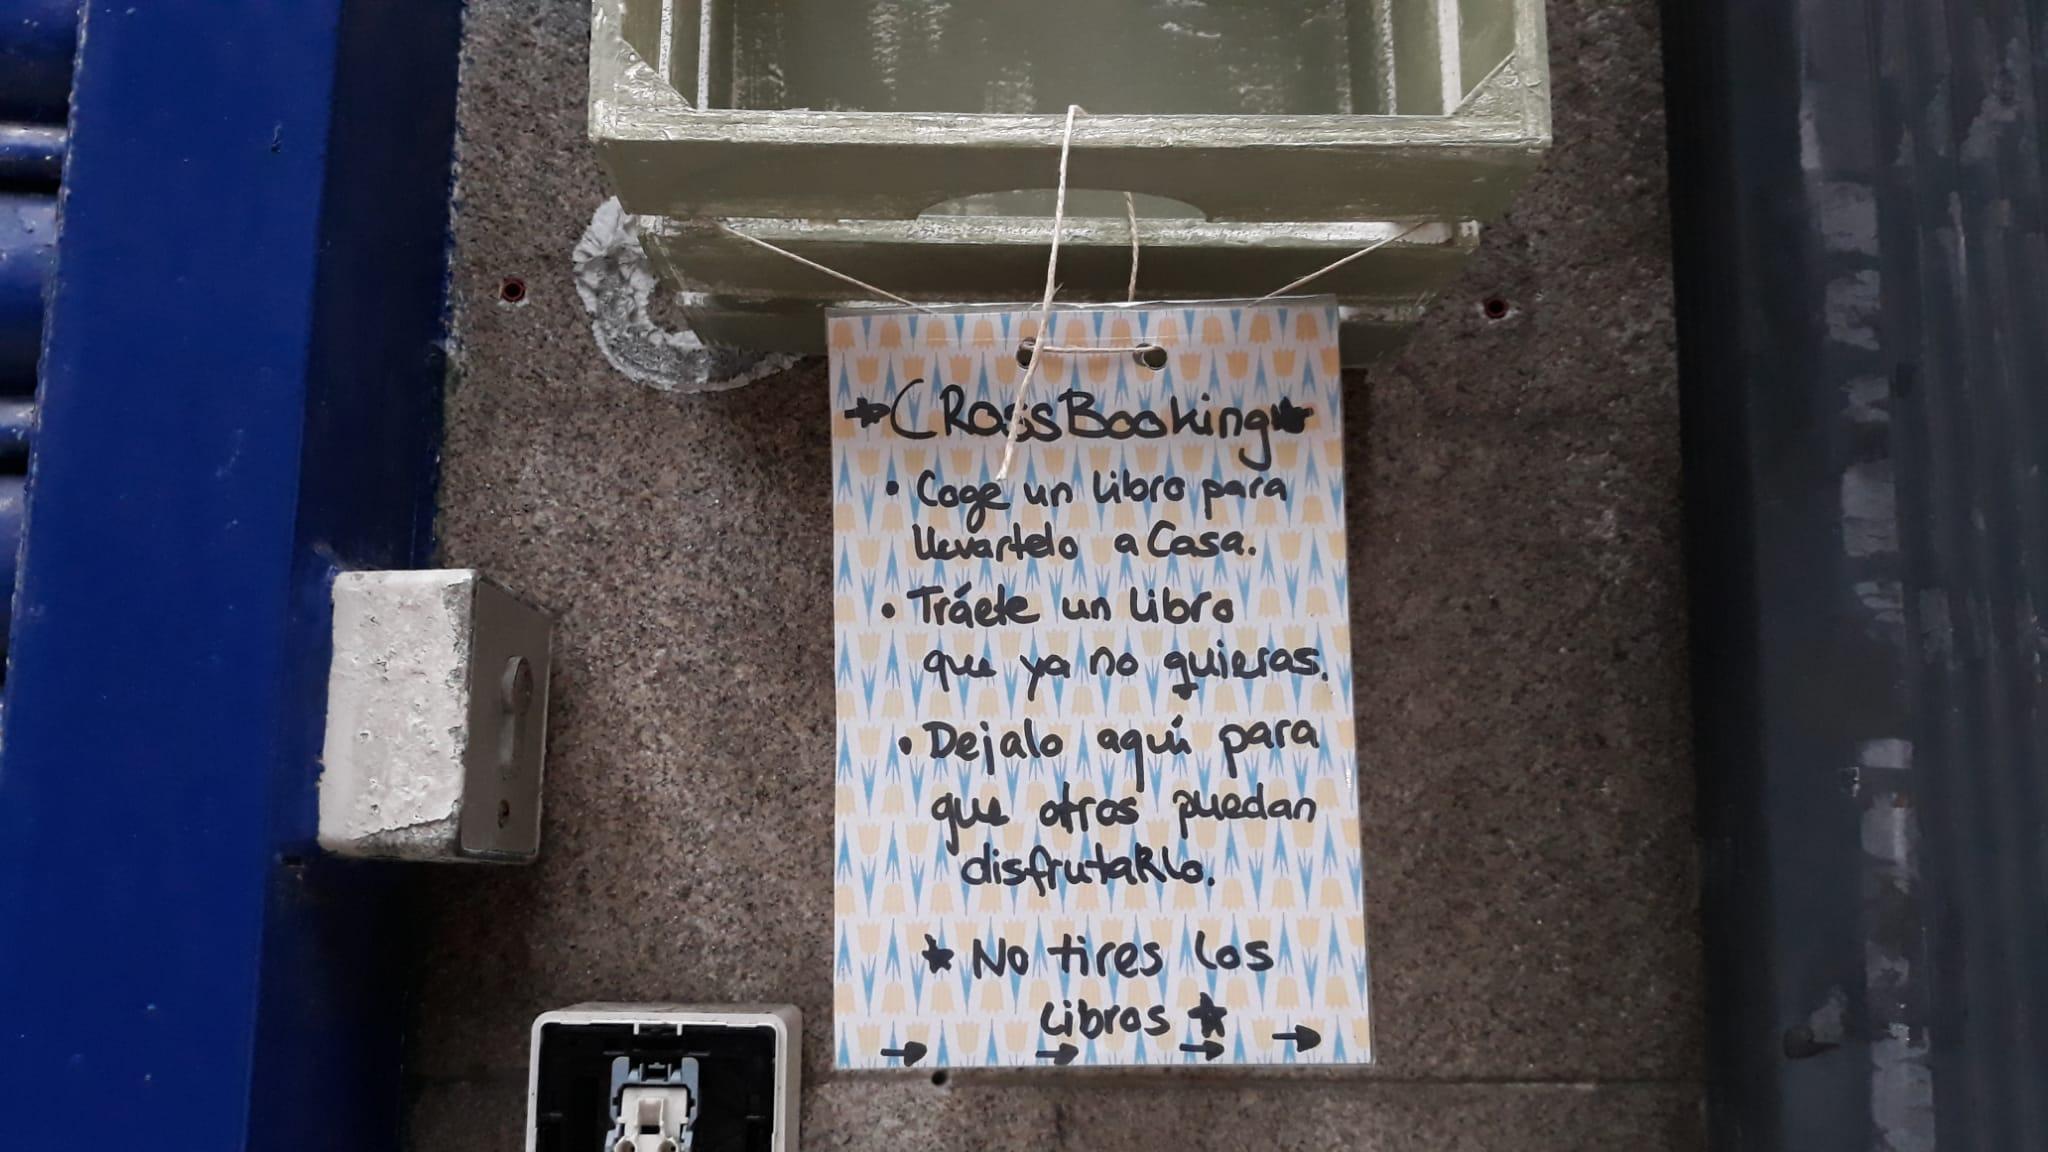 ★CRossBooking★
• Coge un libro para
llevartelo a Casa.
• Tráete un libro
que ya no quieras.
• Dejalo aquí para
que otros puedan
disfrutaRlo.
★ No tires los
libros ★
→ → → →